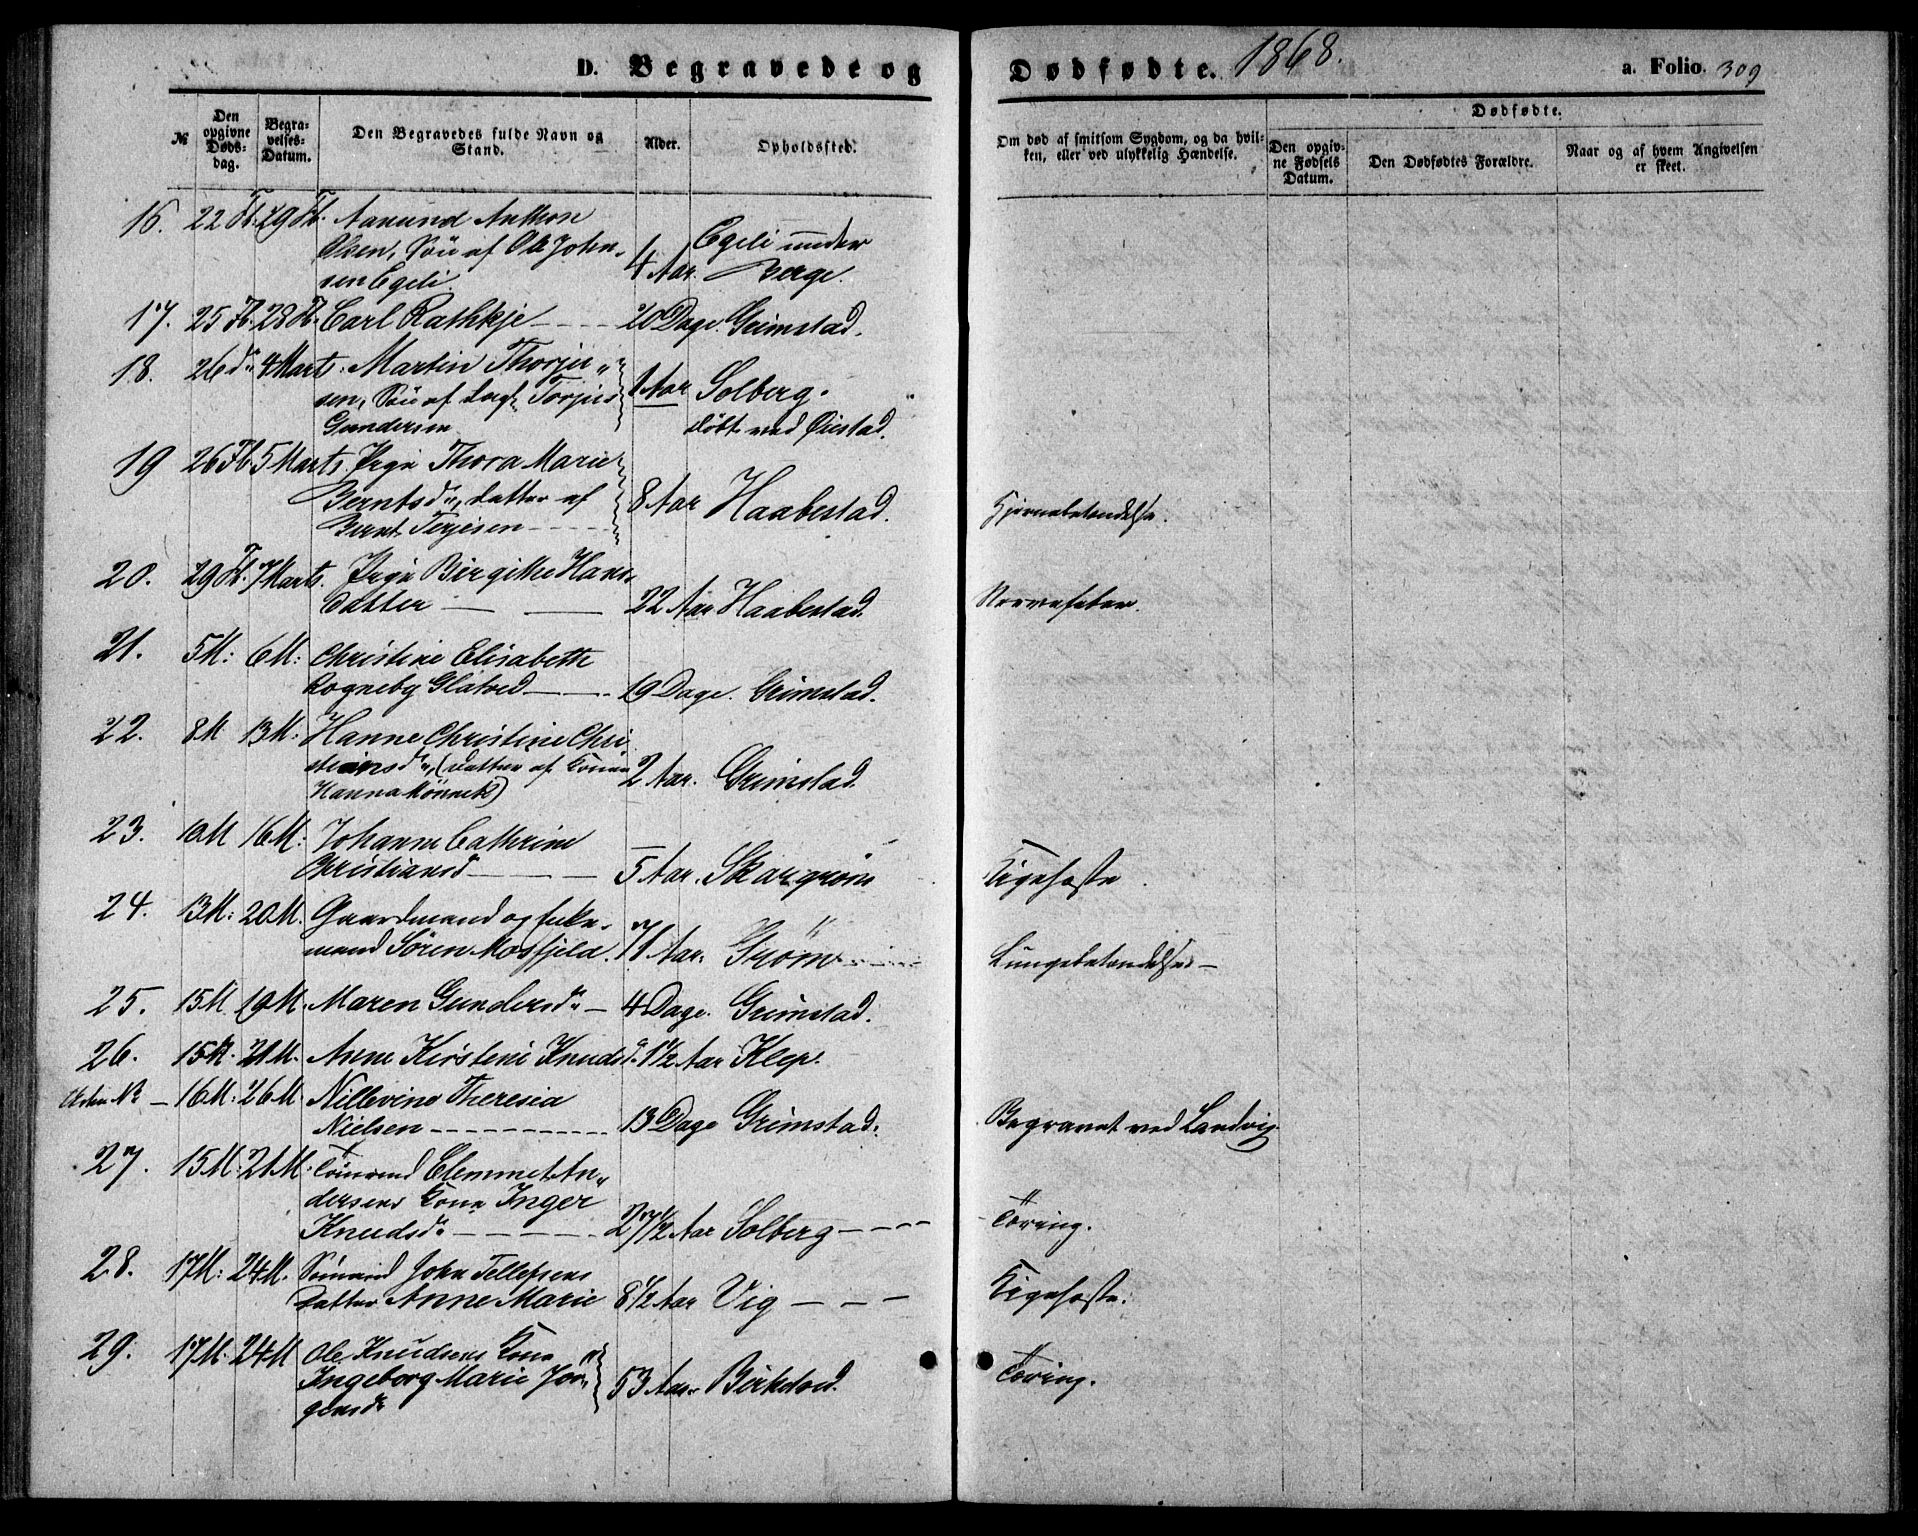 D. Begravede og Dødfødte. 1868. a. Folio. 309
№
Den opgivne Døds-dag.
Begra-velses-Datum.
Den Begravedes fulde Navn og Stand.
Alder.
Opholdssted.
Om død af smitsom Sygdom, og da hvil-
ken, eller ved ulykkelig Hændelse.
Dødfødte.
Den opgiv-ne Fødsels Datum.
Den Dødfødtes Forældre.
Naar og af hvem Angivelsen er skeet.
16. 22 Fb. 29 Fb. Aanund Anthon
Olsen, Søn af Ole John-
sen Egeli. 4 Aar. Egeli under
Berge.
17. 25 Fb. 28 Fb. Carl Rathkje - - - - 20 Dage. Grimstad.
18. 26 do 4 Marts. Martin Thorju-
sen, Søn af Torjus
Gundersen 1 Aar Solberg.
døbt ved Øiestad.
19 26 Fb. 5 Marts. Pige Thora Marie
Berntsdr, Datter af
Bernt Terjesen - - - - 8 Aar Haabestad. Hjernebetændelse.
20. 29 Fb. 7 Marts. Pige Birgitte Hans-
Datter — — 22 Aar Haabestad. Nervefeber.
21. 5 M: 6 M: Christine Elisabeth
Rogneby Glatved — - - 19 Dage. Grimstad.
22. 8 M 13 M: Hanne Christine Chri
stiansdr, (Datter af
Hanna 2 Aar. Grimstad.
23. 10 M 16 M: Johanne Cathrine
Christiansd — - — 5 Aar. Skargrøm Kighoste.
24. 13 M: 20 M. Gaardmand og Enke-
mand Søren Mosfjeld. 71 Aar. Grøm Lungebetændelse —
25. 15 M 19 M. Maren Gundersdr — 4 Dage. Grimstad.
26. 15 M. 21 M. Anne Kirstine Knudsdr. 1½ Aar Klep.
Uden № — 16 M: 26 M. Nillevine Theresia
Nielsen - - - - - 13 Dage Grimstad. Begravet ved Landvig
27. 15 M: 21 M. Tømmd Clemmet An-
dersens Kone Inger
Knudsdr — - — - — 27½ Aar Solberg - - - - Tæring.
28. 17 M: 24 M. Sømand John Tellefsens
Datter Anne Marie 8½ Aar Vig — — — Kighoste.
29. 17 M: 24 M Ole Knudsens Kone
Ingeborg Marie Jør-
gensdr 53 Aar. Birketved. Tæring.